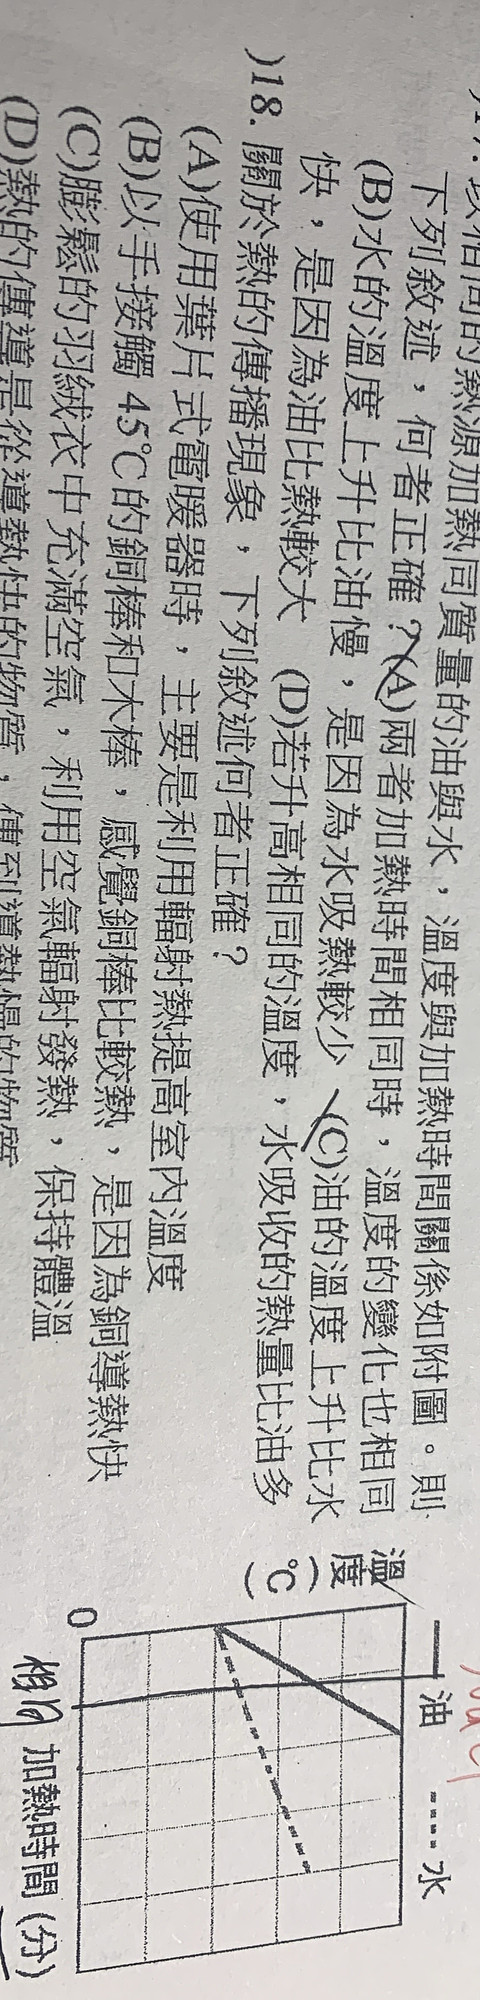 以相同的熱源加熱同質量的油與水，溫度與加熱時間關係如附圖。則
下列敘述，何者正確？(A)兩者加熱時間相同時，溫度的變化也相同
(B)水的溫度上升比油慢，是因為水吸熱較少 (C)油的溫度上升比水
快，是因為油比熱較大 (D)若升高相同的溫度，水吸收的熱量比油多
)18. 關於熱的傳播現象，下列敘述何者正確？
(A)使用葉片式電暖器時，主要是利用輻射熱提高室內溫度
(B)以手接觸 45℃的銅棒和木棒，感覺銅棒比較熱，是因為銅導熱快
(C)膨鬆的羽絨衣中充滿空氣，利用空氣輻射發熱，保持體溫
(D)熱的傳導是從導熱快的物質，傳到導熱慢的物質
油 水
溫度(℃)
0
加熱時間(分)